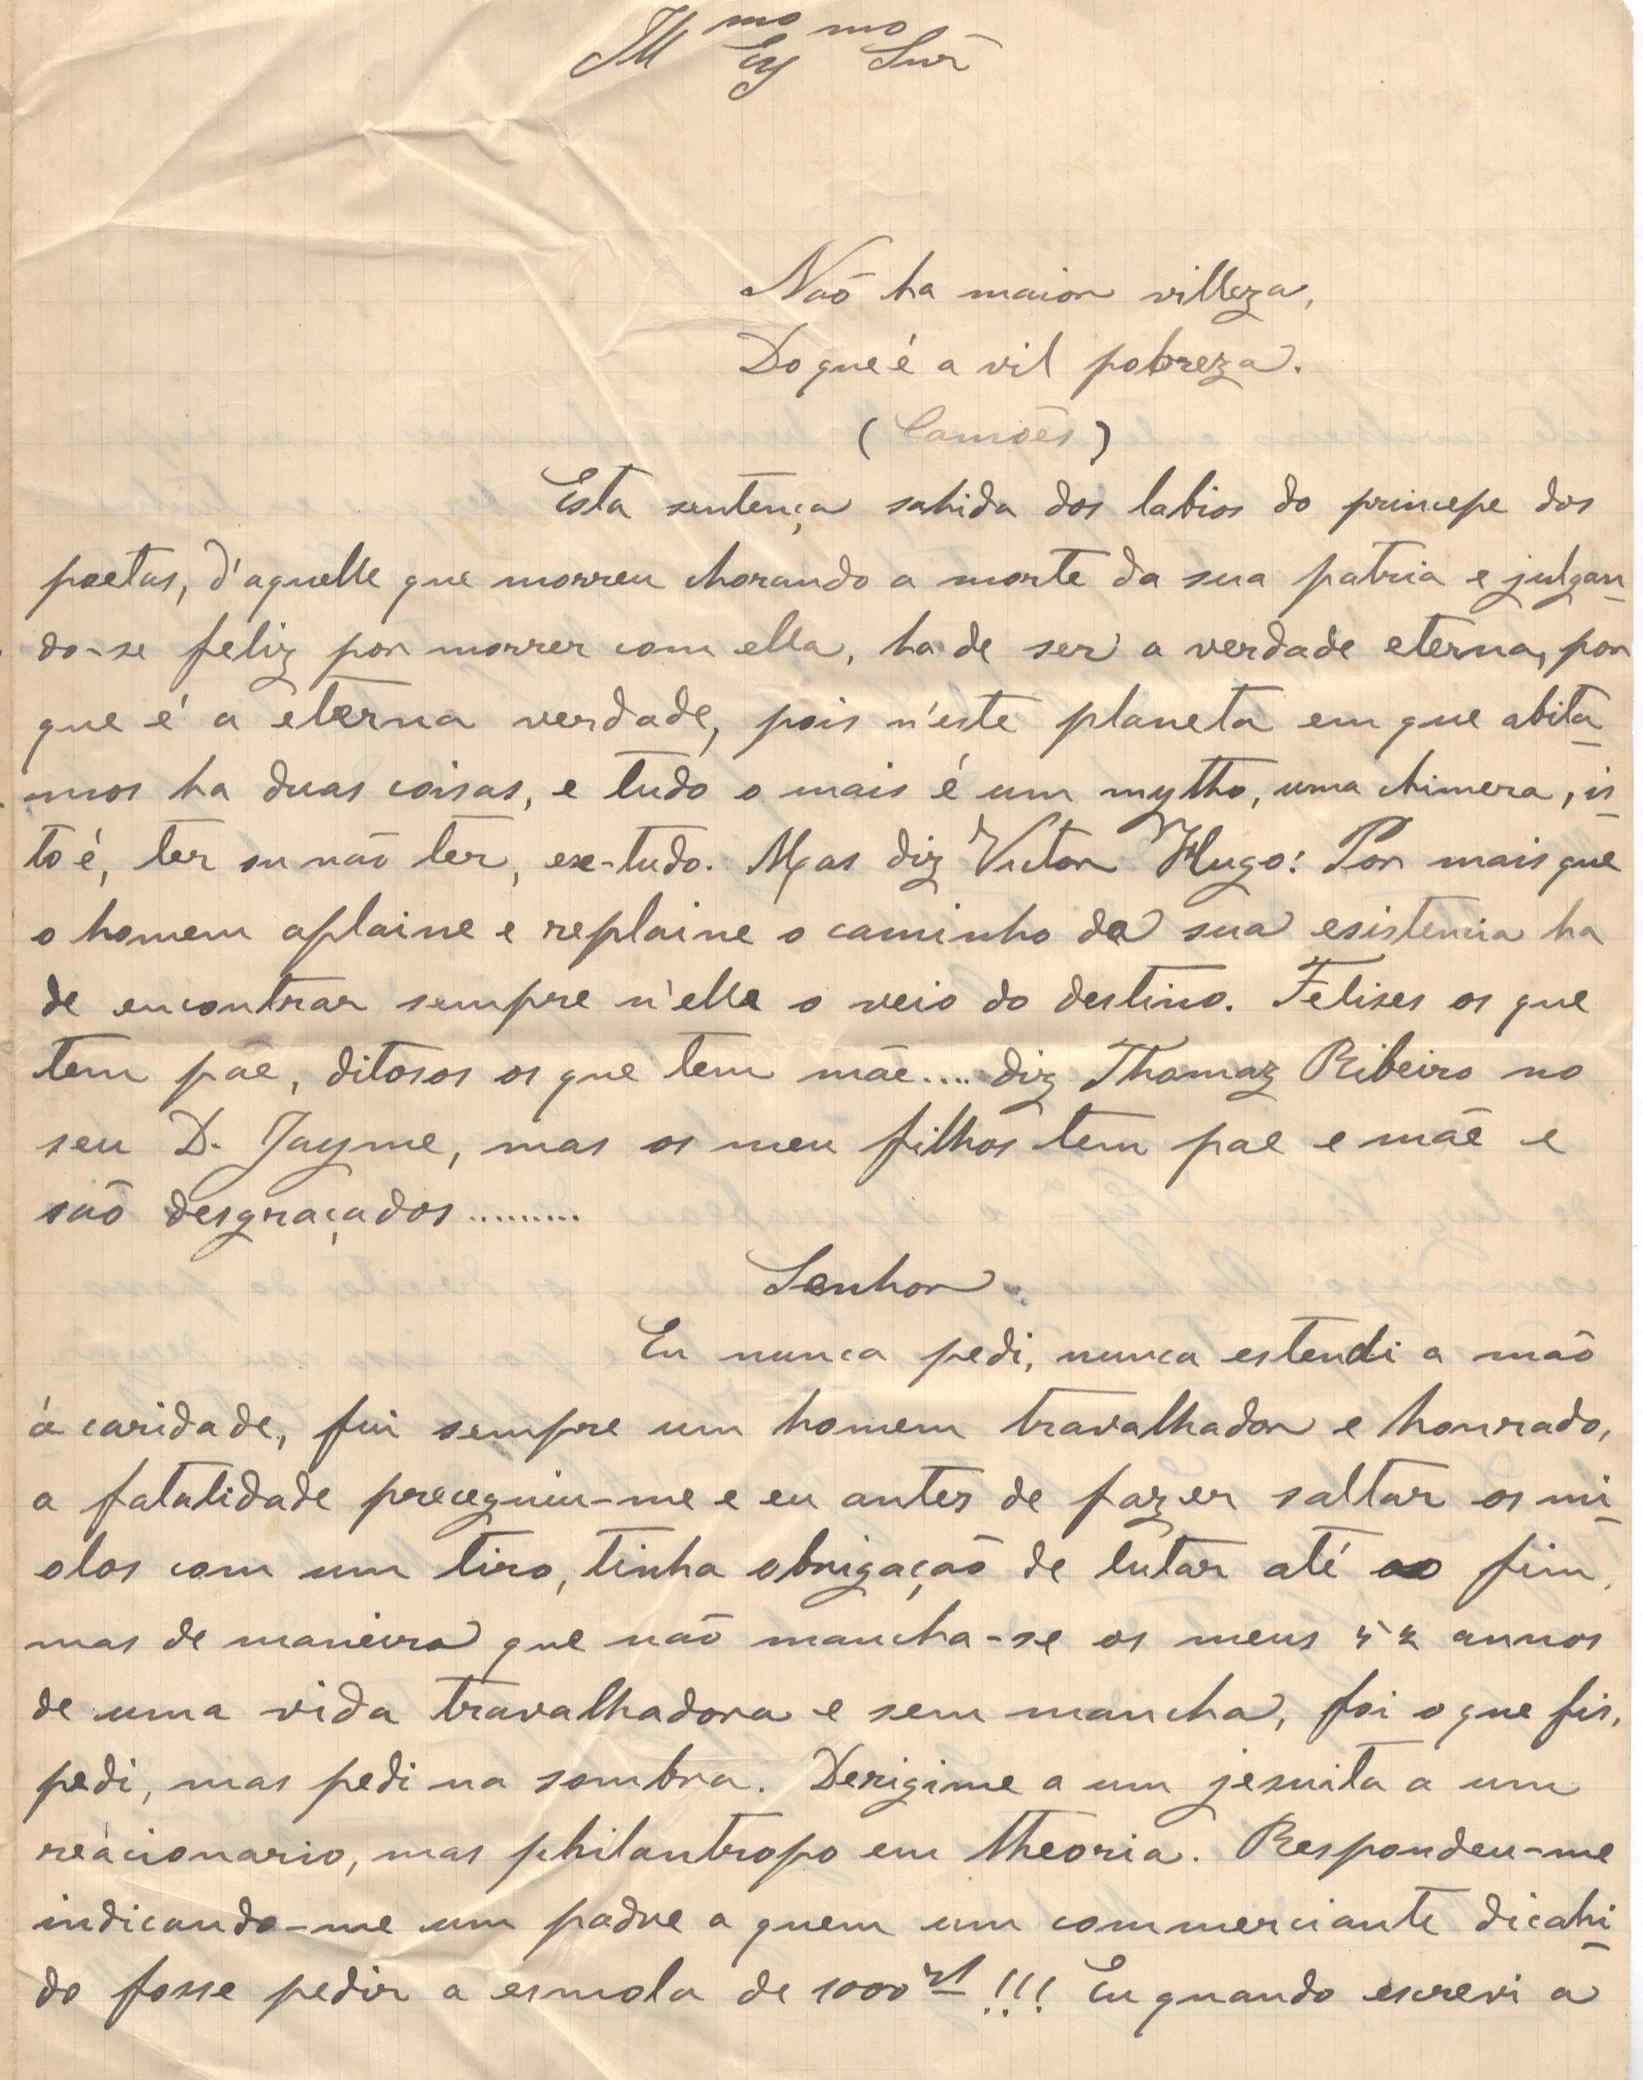 Ill mo Ex mo Snr
Não ha maior villeza,
Do que é a vil pobreza.
(Camões)
Esta sentença sahida dos labios do principe dos
poetas, d'aquelle que morreu chorando a morte da sua patria e julgan-
do-se feliz por morrer com ella, ha de ser a verdade eterna, por
que é a eterna verdade, pois n'este planeta em que abita-
mos ha duas coisas, e tudo o mais é um mytho, uma chimera, is-
to é, ter ou não ter, exe-tudo. Mas diz Victor Hugo: Por mais que
o homem aplaine e replaine o caminho da sua esistencia ha
de encontrar sempre n'ella o veio do destino. Felises os que
tem páe, ditosos os que tem mãe.... diz Thomaz Ribeiro no
seu D. Jayme, mas os meu filhos tem pae e mãe e
são desgraçados.........
Senhor.
Eu nunca pedi, nunca estendi a mão
á caridade, fui sempre um homem travalhador e honrado,
a fatalidade preceguiu-me e eu antes de fazer saltar os mi-
olos com um tiro, tinha obrigação de lutar até ao fim,
mas de maneira que não mancha-se os meus 52 annos
de uma vida travalhadora e sem mancha, foi o que fis,
pedi, mas pedi na sombra. Derigime a um jesuita a um
reácionario, mas philantropo em theoria. Respondeu-me
indicando-me um padre a quem um commerciante dicahi-
do fosse pedir a esmola de 1000 rs!!! Eu quando escrevi a